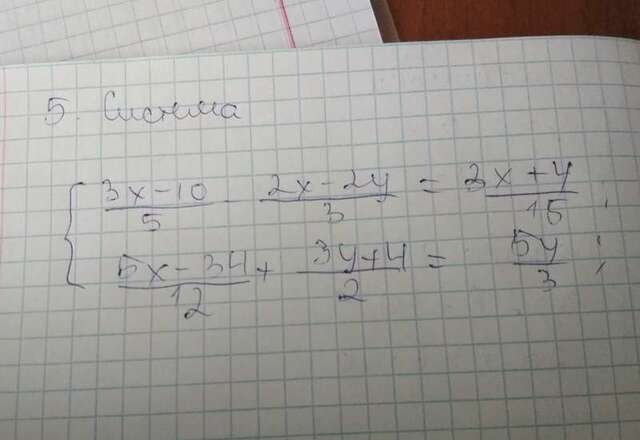 5. Система
3x-10/5 - 2x-2y/3 = 3x+4/15;
5x-34/12 + 3y+4/2 = 5y/3;